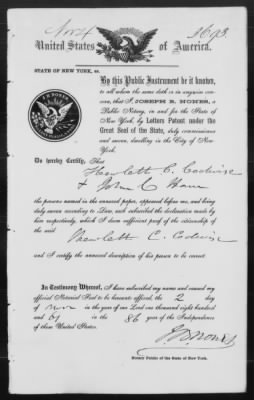 Nov 4
United States of America.
STATE OF NEW YORK, ss.
By this Public Instrument be it known,
to all whom the same doth or in anywise concern, that I, JOSEPH B. NONES, a
Public Notary, in and for the State of
New York, by Letters Patent under the
Great Seal of the State, duly commissioned
and sworn, dwelling in the City of New
York.
Do hereby Certify, That
Hewlett C.
& John C
the persons named in the annexed paper, appeared before me, and being
duly sworn according to Law, each subscribed the declaration made by
him respectively, which I deem sufficient proof of the citizenship of
the said
Hewlett C.
and I certify the annexed description of his person to be correct
In Testimony Whereof, I have subscribed my name and caused my
official Notarial Seal to be hereunto affixed, the 2 day
of Nov in the year of our Lord one thousand eight hundred
and 61 in the 86 year of the Independence
of these United States.
J B Nones
Notary Public of the State of New York.